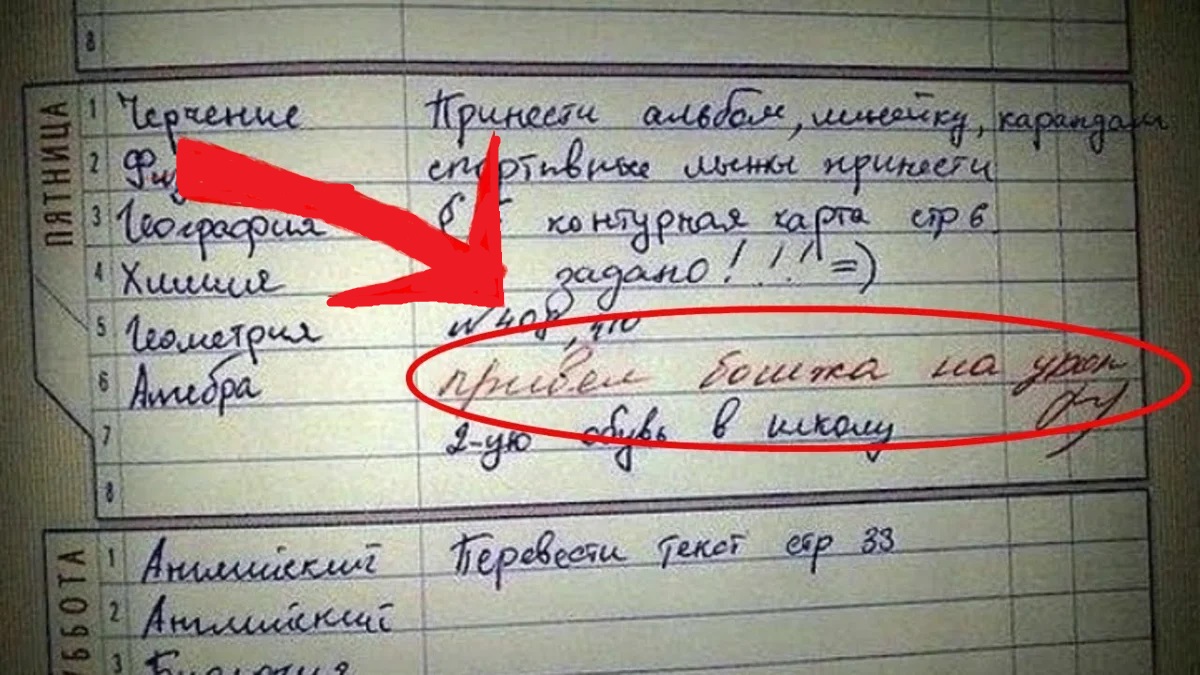 8
ПЯТНИЦА
1 Черчение Принести альбом, линейку, карандаш
2 спортивные лыжы принести
3 География контурная карта стр 6
4 Химия задано!!! =)
5 Геометрия № 408, 410
6 Алгебра привел бомжа на урок
7 2-ую обувь в школу
8
СУББОТА
1 Английский Перевести текст стр 33
2 Английский
3 Биология